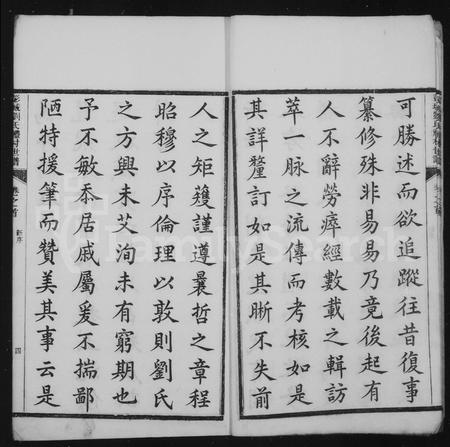 可勝述而欲追蹤往昔復事
纂修殊非易易乃竟後起有
人不辭勞瘁經數載之輯訪
萃一脉之流傳而考核如是
其詳釐訂如是其晰不失前
人之矩矱謹遵曩哲之章程
昭穆以序倫理以敦則劉氏
之方興未艾洵未有窮期也
予不敏忝居戚屬爰不揣鄙
陋特援筆而贊美其事云是
彭城劉氏禮村世譜 卷之首 新序 四
FamilySearch